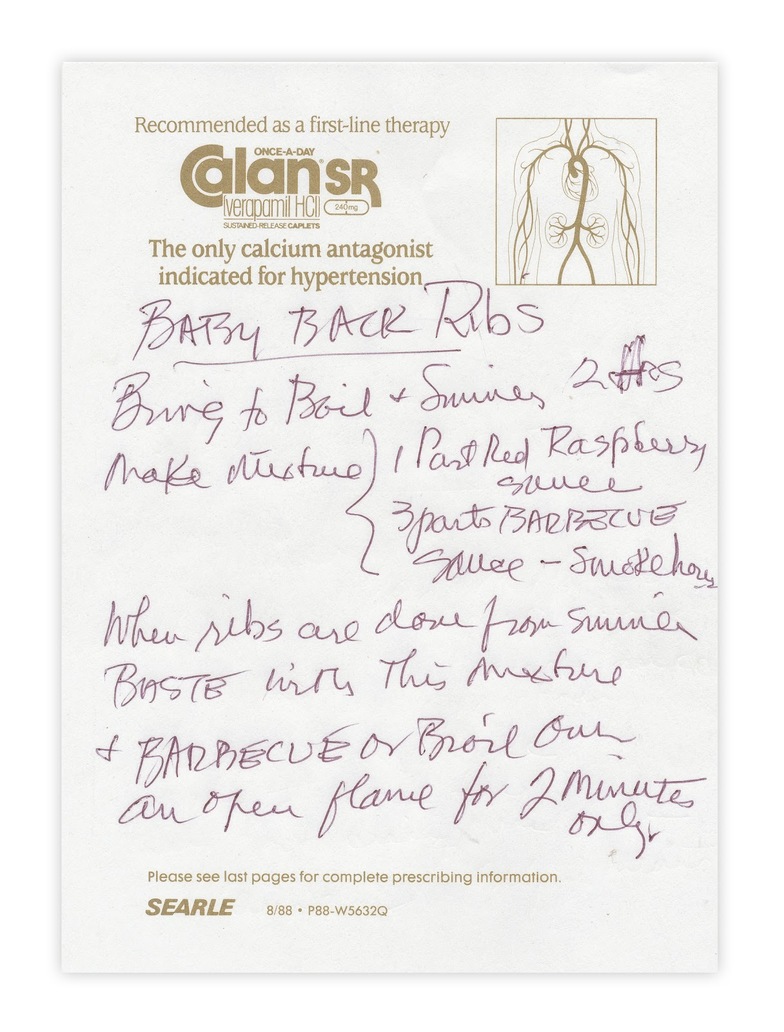 Recommended as a first-line therapy
ONCE-A-DAY
Calan® SR
(verapamil HCl) 240 mg
SUSTAINED-RELEASE CAPLETS
The only calcium antagonist
indicated for hypertension
BABY BACK RibS
Bring to Boil + Simmer 2 HRS
Make Mixture } 1 Part Red Raspberry
sauce
3 parts BARBECUE
Sauce - Smokehouse
When ribs are done from simmer
BASTE with This Mixture
+ BARBECUE or Broil Over
an open flame for 2 Minutes
only.
Please see last pages for complete prescribing information.
SEARLE 8/88 • P88-W5632Q